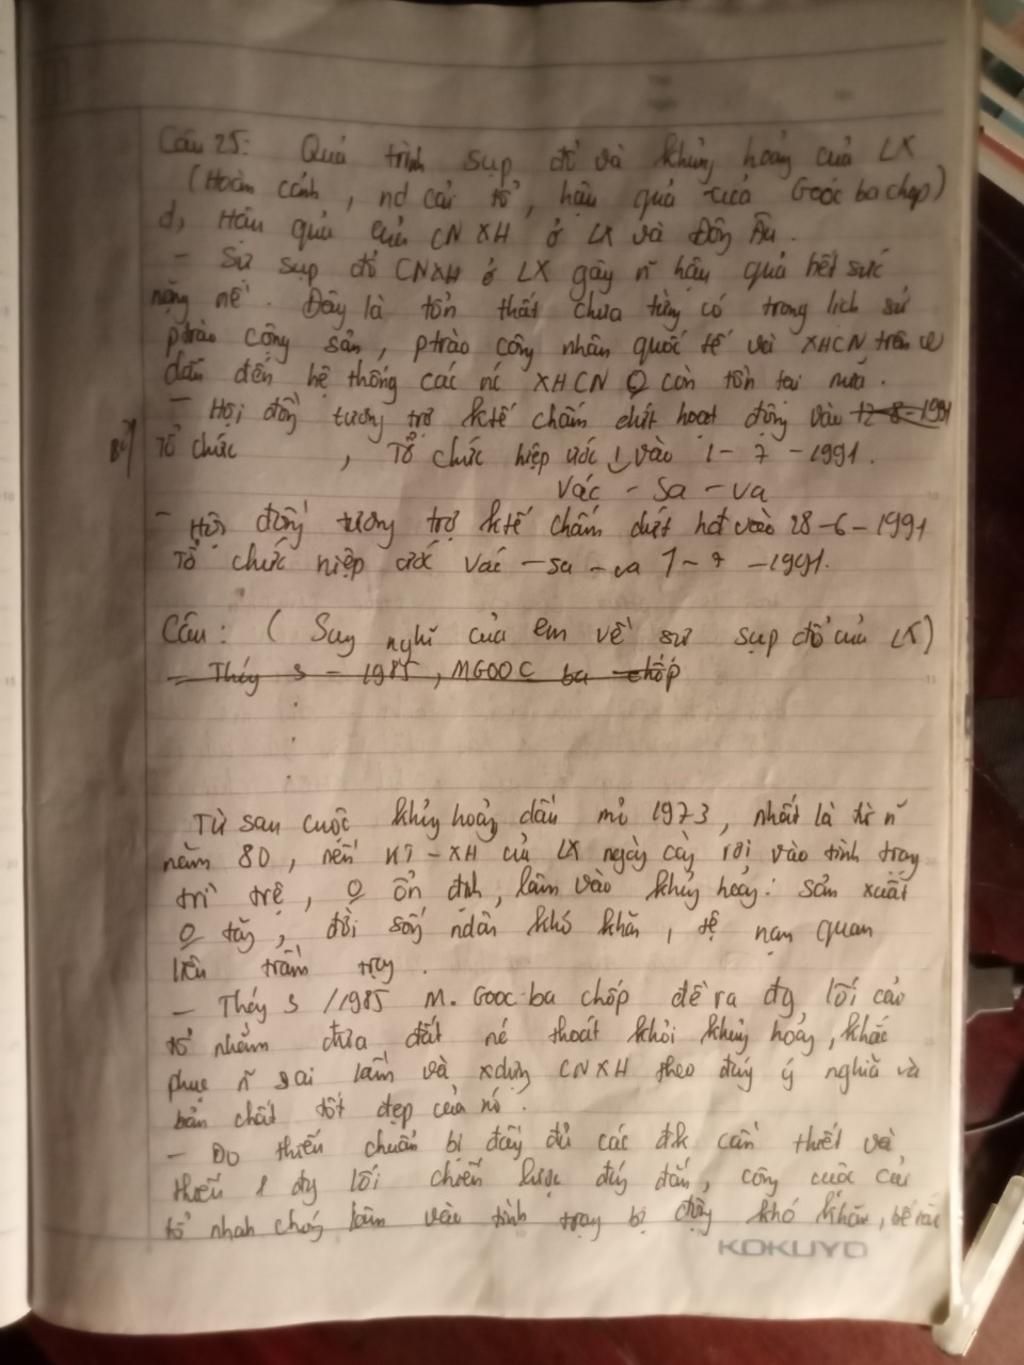 Câu 25: Quá trình sụp đổ và khủng hoảng của LX
(Hoàn cảnh, nd cải tổ, hậu quả của Gooc ba chop)
d, Hậu quả của CNXH ở LX và Đông Âu.
- Sự sụp đổ CNXH ở LX gây n~ hậu quả hết sức
nặng nề. Đây là tổn thất chưa từng có trong lịch sử
ptrào cộng sản, ptrào công nhân quốc tế và XHCN trên
dẫn đến hệ thống các nc XHCN O còn tồn tại nữa.
- Hội đồng tương trợ ktế chấm dứt hoạt động vào 12-8-1991
Tổ chức , Tổ chức hiệp ước vào 1-7-1991.
Vác - Sa - va
- Hội đồng tương trợ ktế chấm dứt hđ vào 28-6-1991
Tổ chức hiệp ước Vác - sa - va 1-7-1991.
Câu: (Suy nghĩ của em về sự sụp đổ của LX)
- Tháy 3 - 1985, MGOOC ba chốp
Từ sau cuộc khủy hoảy dầu mỏ 1973, nhất là từ n~
năm 80, nền KT-XH của LX ngày cày rơi vào tình trạy
trì trệ, O ổn địh, lâm vào khủy hoảy: sản xuất
O tăg, đời sốg ndân khó khăn, tệ nạn quan
liêu trầm trọy.
- Tháy 3/1985 M. Gooc-ba chốp đề ra đg lối cải
tổ nhằm đưa đất nc thoát khỏi khủy hoảy, khắc
phục n~ sai lầm và xdựg CNXH theo đúy ý nghĩa và
bản chất tốt đẹp của nó.
- Do thiếu chuẩn bị đầy đủ các đk cần thiết và
thiếu 1 đg lối chiến lược đúy đắn, công cuộc cải
tổ nhah chóg lâm vào tình trạy bị độg khó khăn, bế tắc
KOKUYO